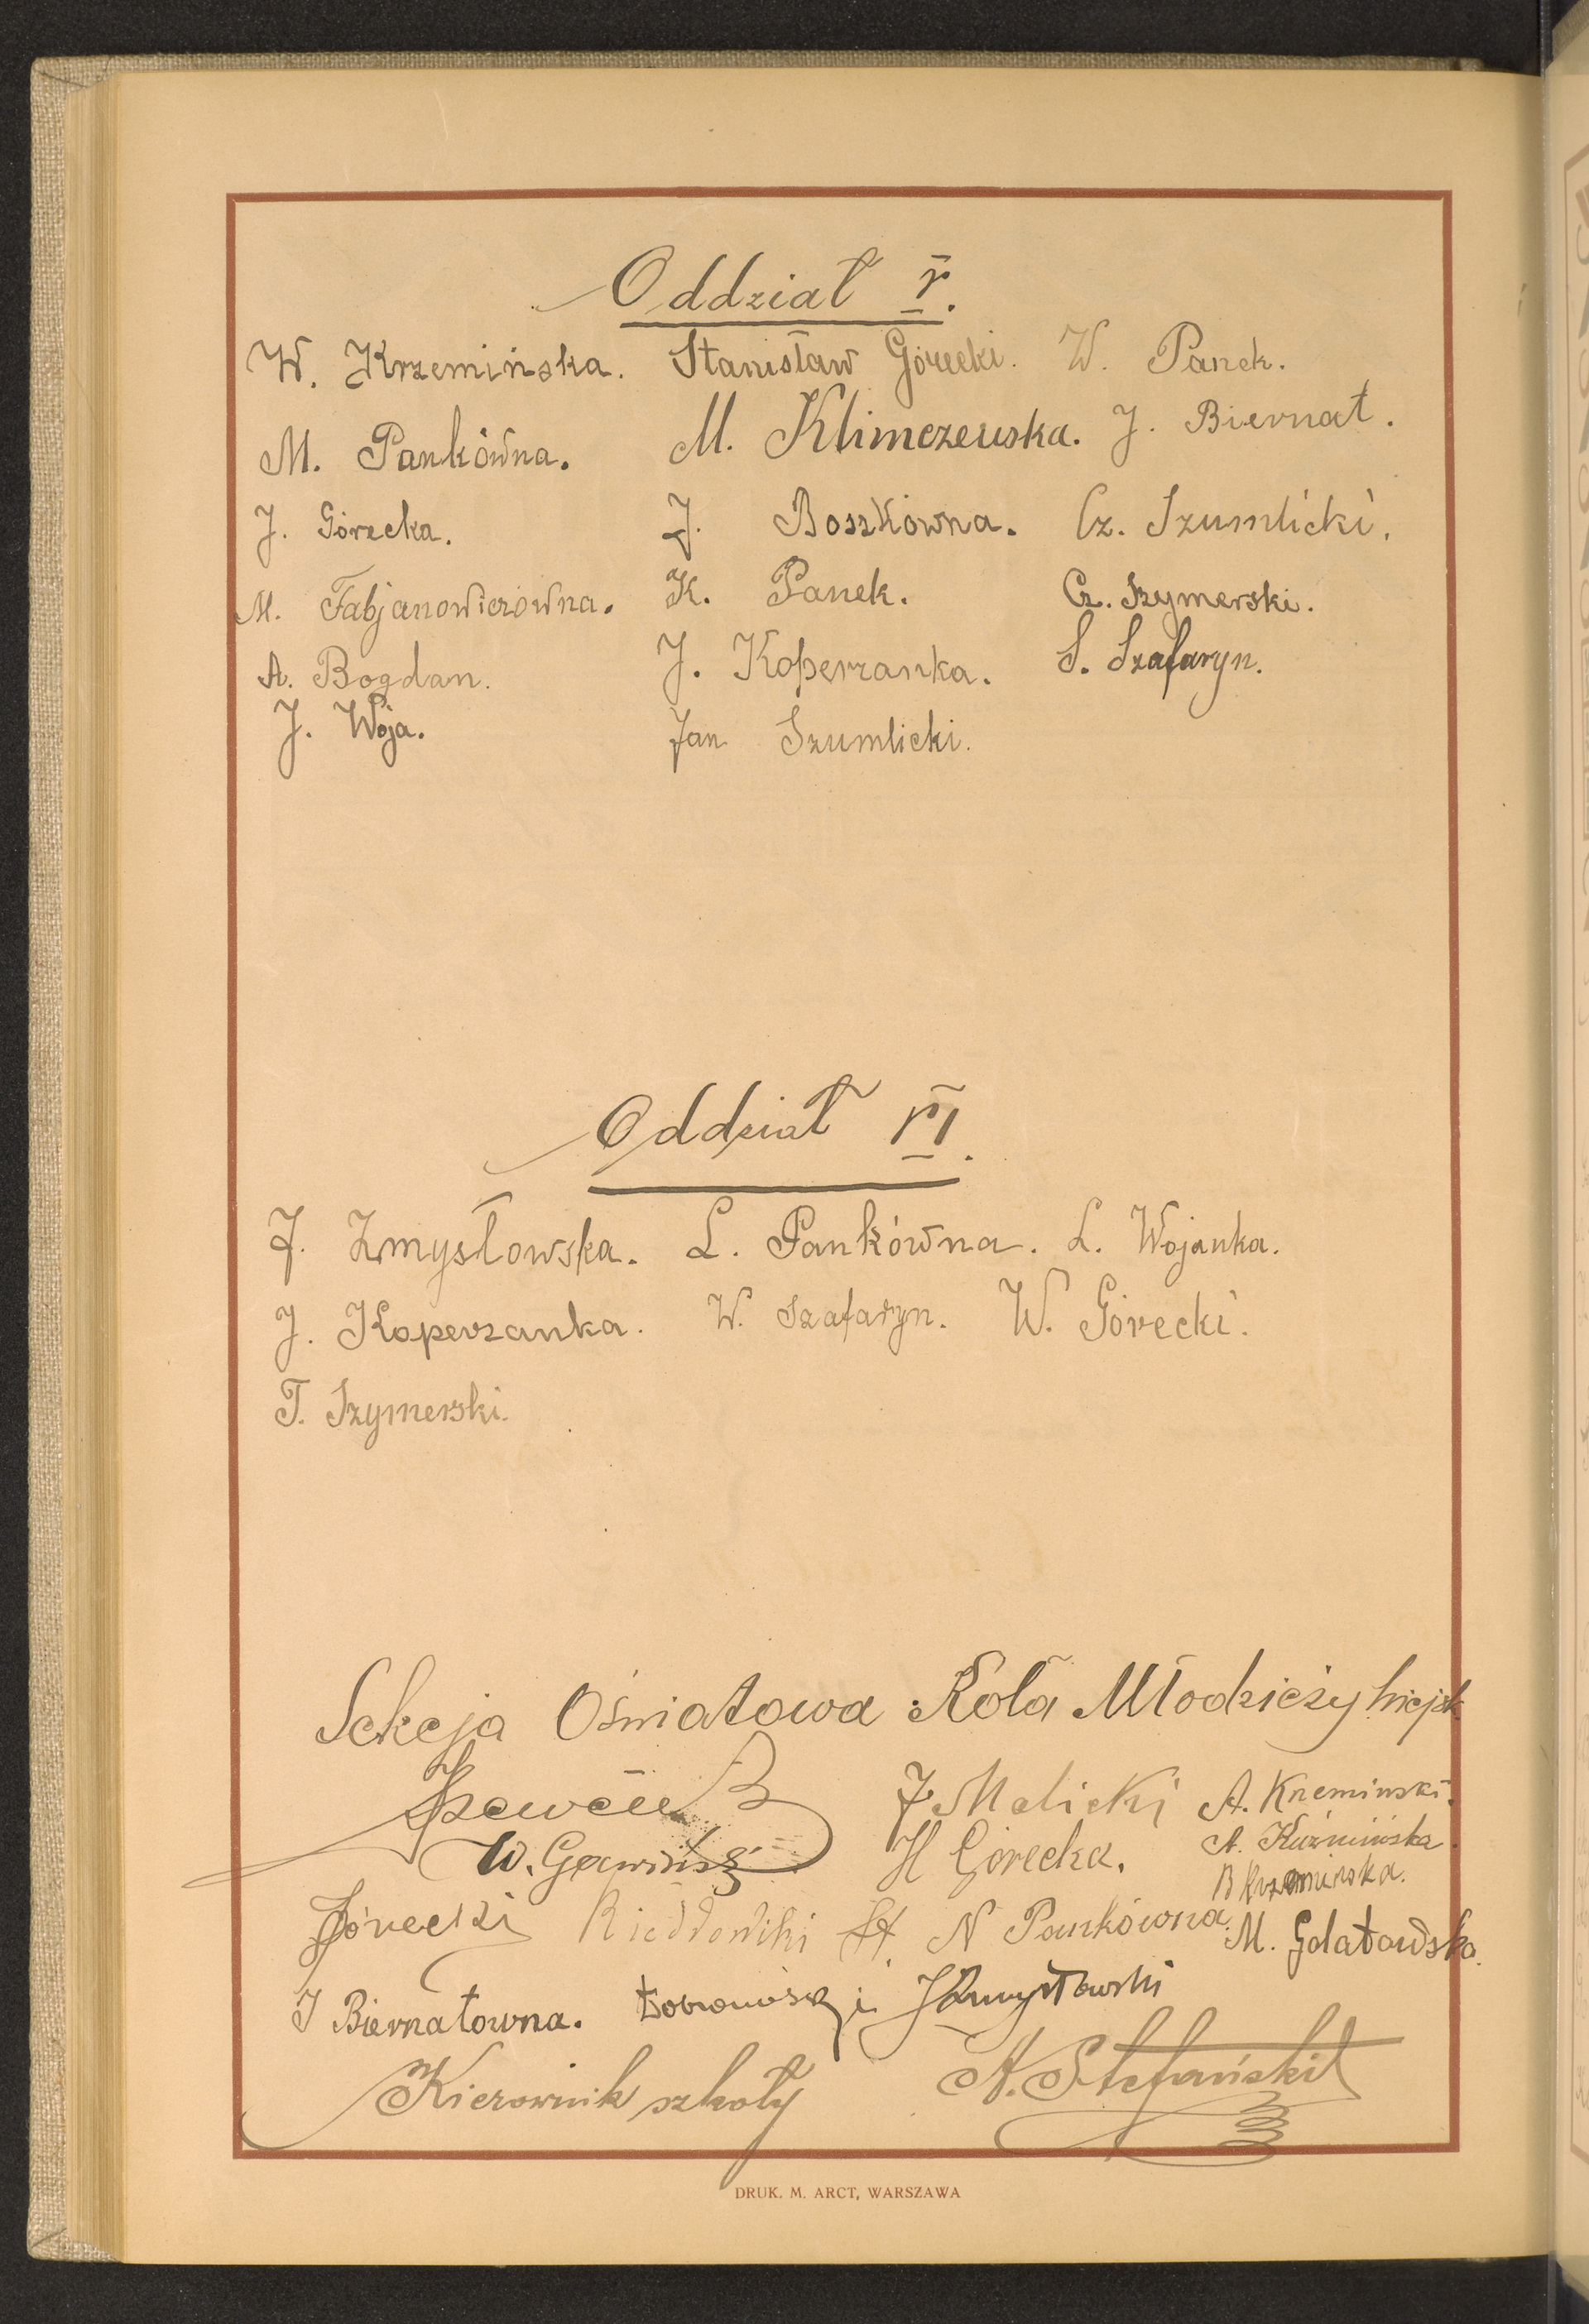 Oddział V.
W. Krzemińska. Stanisław Górecki. W. Panek.
M. Pankówna. M. Klimczewska. J. Biernat.
J. Górecka. J. Boszkówna. Cz. Szumlicki.
M. Fabjanowiczówna. K. Panek. Cz. Szymerski.
A. Bogdan. J. Koperzanka. S. Szafaryn.
J. Woja. Jan Szumlicki.
Oddział VI.
J. Zmysłowska. L. Pankówna. L. Wojanka.
J. Koperzanka. W. Szafaryn. W. Górecki.
T. Szymerski.
Sekcja Oświatowa Koła Młodzieży Wiejsk
J Malicki A. Krzemiński.
W. Gawiński H Górecka. A. Kuźmińska.
B Krzemińska.
Górecki St. N Pankówna. M. Golatowska.
J Biernatowna. J Zmysłowski
Kierownik szkoły A. Stefański
DRUK. M. ARCT, WARSZAWA